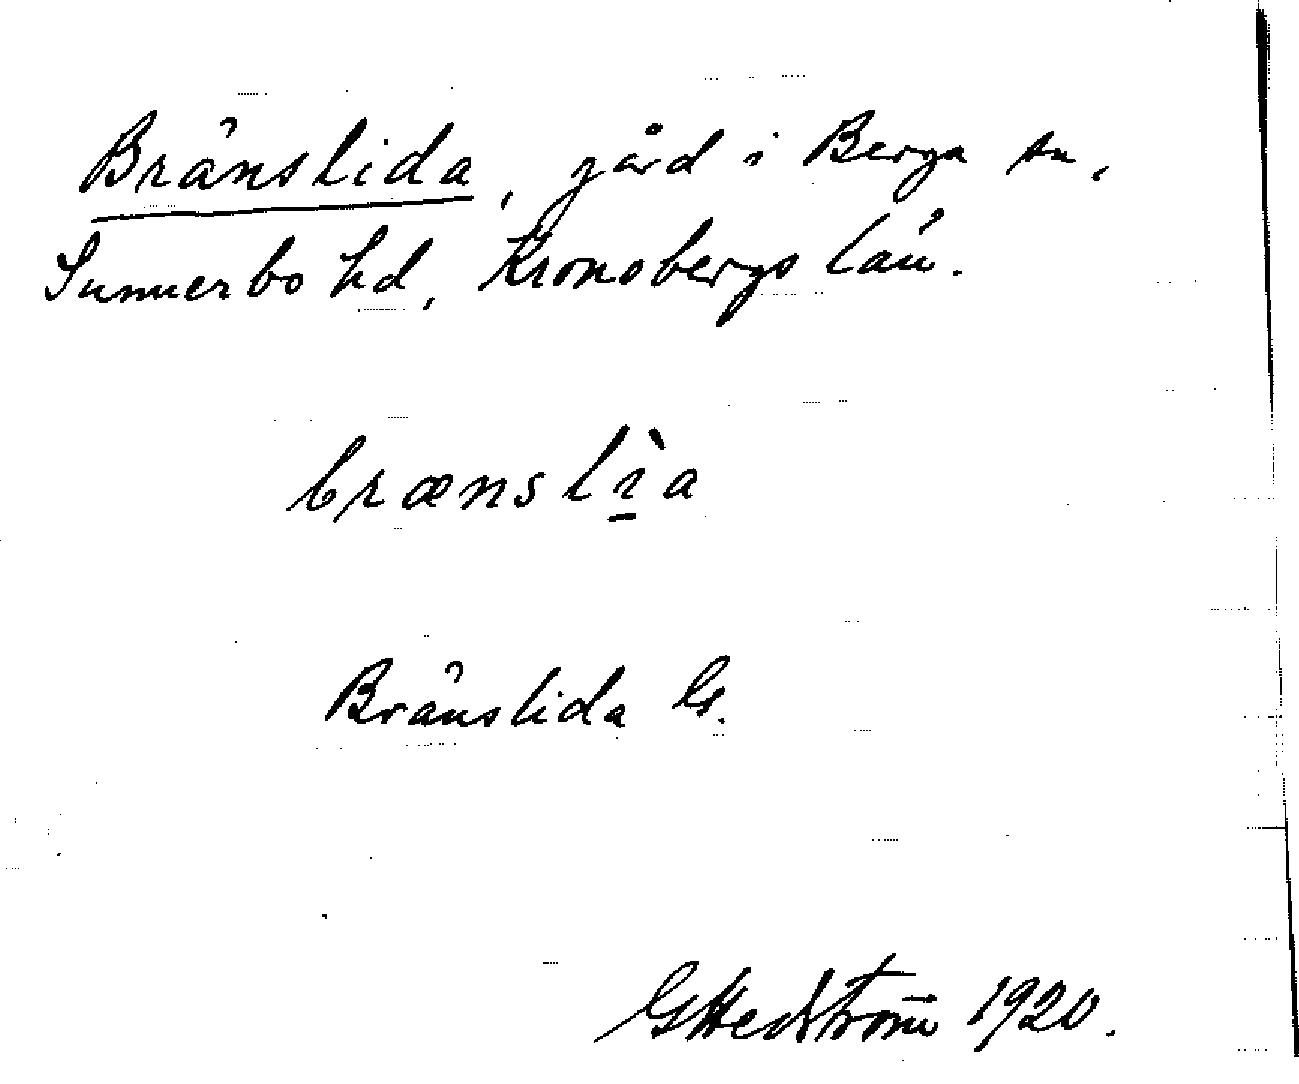 Bränslida, gård i Berga sn,
Sunnerbo hd, Kronobergs län.
brænslìa
Bränslida G.
G Hedström 1920.